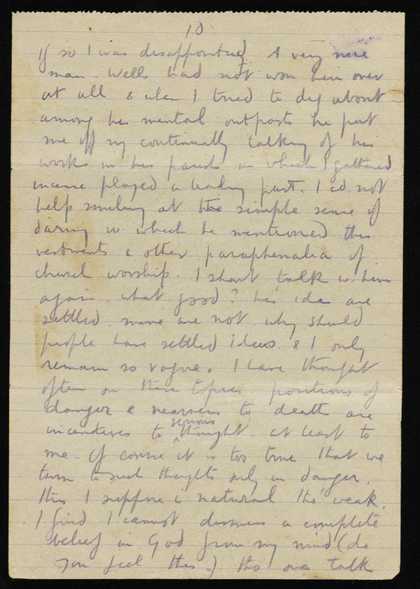 10
If so I was disappointed. A very nice
man. Wells had not won him over
at all & when I tried to dig about
among his mental outposts he put
me off by continually talking of his
works in his parish in which I gathered
incense played a leading part. I cd not
help smiling at the simple sense of
daring w which he mentioned the
vestments & other paraphenalia of
church worship. I shant talk to him
again. What good? his ideas are
settled. mine are not. Why should
people have settled ideas & I only
remain so vague. I have thought
often on these topics. positions of
danger & nearness to death are
incentives to serious thought. at least to
me. Of course it is too true that we
turn to such thoughts only in danger.
this I suppose is natural tho' weak.
I find I cannot dismiss a complete
belief in God from my mind (do
you feel this.) tho' one talk